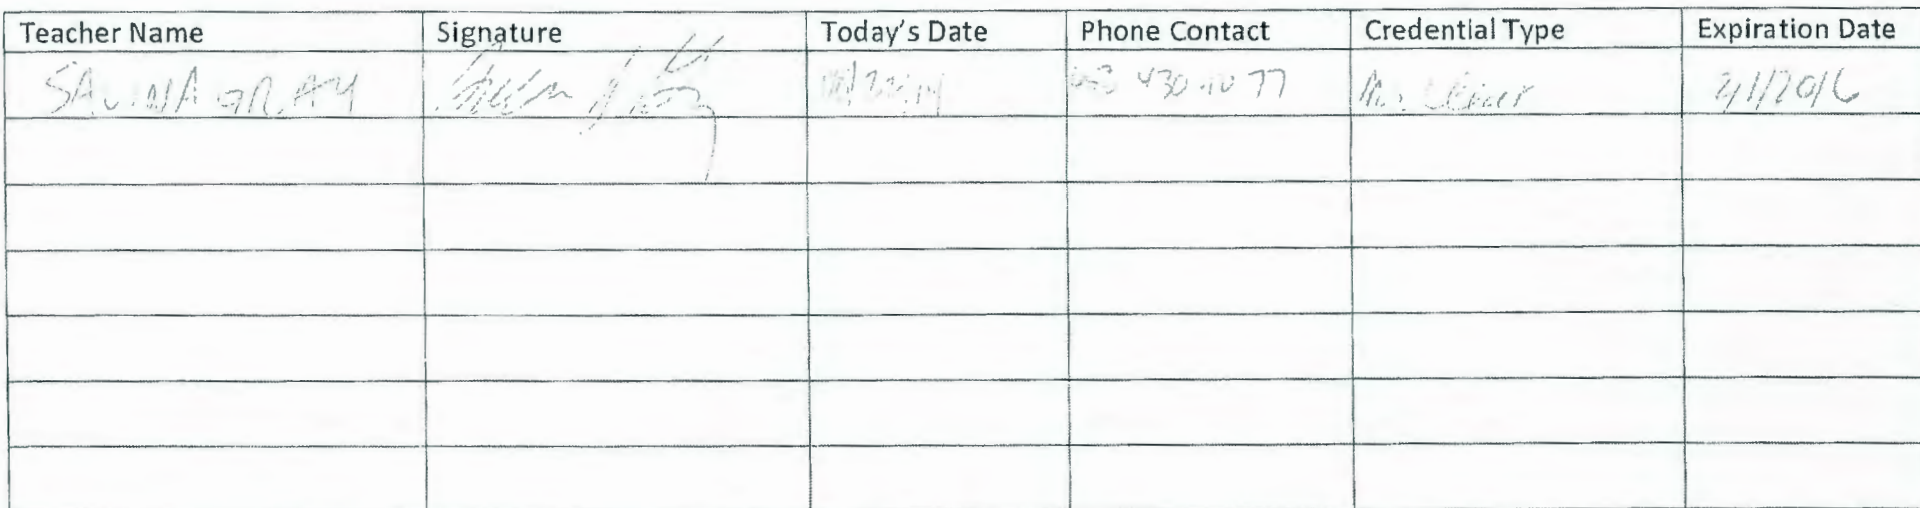 Teacher Name Signature Today's Date Phone Contact Credential Type Expiration Date
SAVINA GRAY 430 77 Clear 2/1/2016